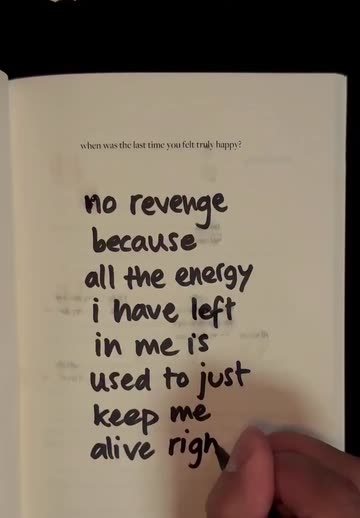 when was the last time you felt truly happy?
no revenge
because
all the energy
i have left
in me is
used to just
keep me
alive righ